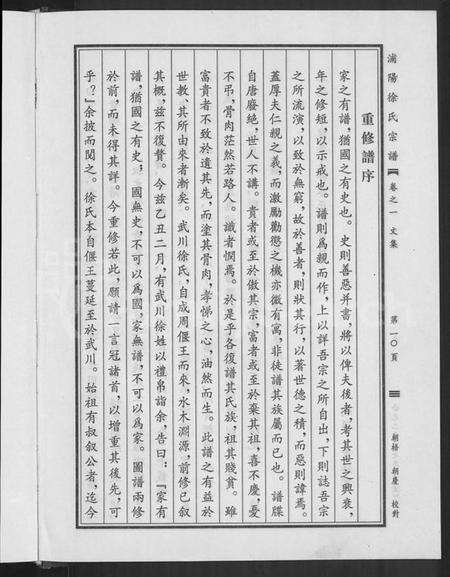 浦陽徐氏宗譜 卷之一 文集 第一〇頁 朝梧 朝慶 校對
重修譜序
家之有譜，猶國之有史也。史則善惡并書，將以俾夫後者，考其世之興衰，
年之修短，以示戒也。譜則爲親而作，上以詳吾宗之所自出，下則誌吾宗
之所流演，以致於無窮，故於善者，則狀其行，以著世德之積，而惡則諱焉。
蓋厚夫仁親之義，而激勵勸懲之機亦微有寓，非徒譜其族屬而已也。譜牒
自唐廢絶，世人不講。貴者或至於傲其宗，富者或至於棄其祖，喜不慶，憂
不弔，骨肉茫然若路人。識者憫焉。於是乎各復譜其氏族，祖其賤貧。雖
富貴者不致於遺其先，而塗其骨肉，孝悌之心，油然而生。此譜之有益於
世教、其所由來者漸矣。武川徐氏，自成周偃王而來，水木淵源，前修已叙
其概，茲不復贅。今茲乙丑二月，有武川徐姓以禮帛詣余，告曰：『家有
譜，猶國之有史，國無史，不可以爲國，家無譜，不可以爲家。圖譜兩修
於前，而未得其詳。今重修若此，願請一言冠諸首，以增重其後先，可
乎？』余披而閱之。徐氏本自偃王蔓延至於武川。始祖有叔叙公者，迄今